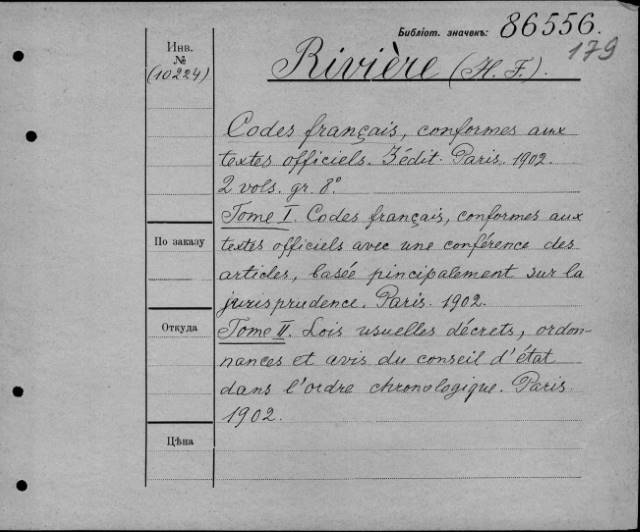 Библіот. значекъ: 86556.
179
Инв.
№
(10224)
Rivière (H. F.).
Codes français, conformes aux
textes officiels. 3 édit. Paris. 1902.
2 vols. gr. 8°.
Tome I. Codes français, conformes aux
textes officiels avec une conférence des
articles, basée pincipalement sur la
jurisprudence. Paris. 1902.
По заказу
Откуда
Tome II. Lois usuelles décrets, ordon-
nances et avis du conseil d'état
dans l'ordre chronologique. Paris.
1902.
Цѣна